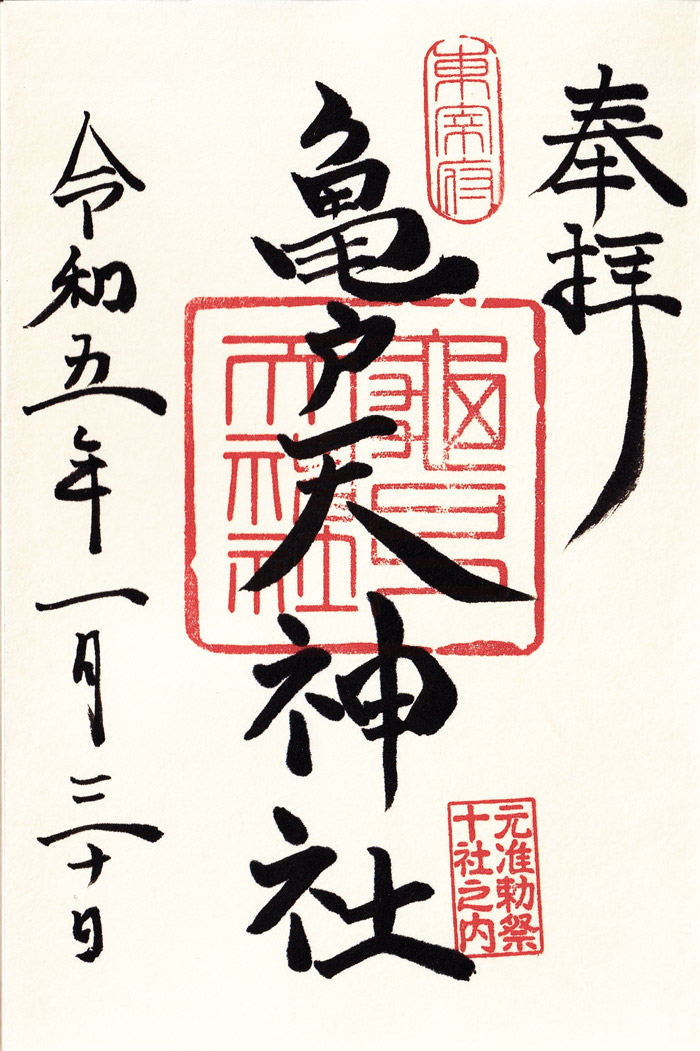 奉拝
東宰府
亀戸天神社
元准勅祭
十社之内
令和五年一月三十日